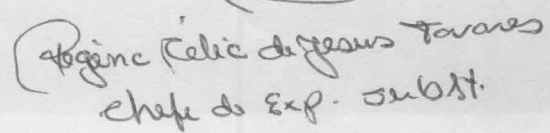 Regina Célia de Jesus Tavares
Chefe de Exp. Subst.